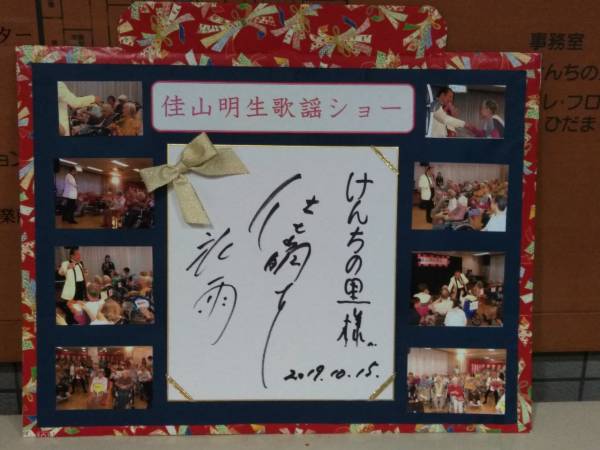 佳山明生歌謡ショー
けんちの里様
氷雨
2019.10.15.
事務室
けんちの
レ・フロ
ひだま
ター
ョン
業